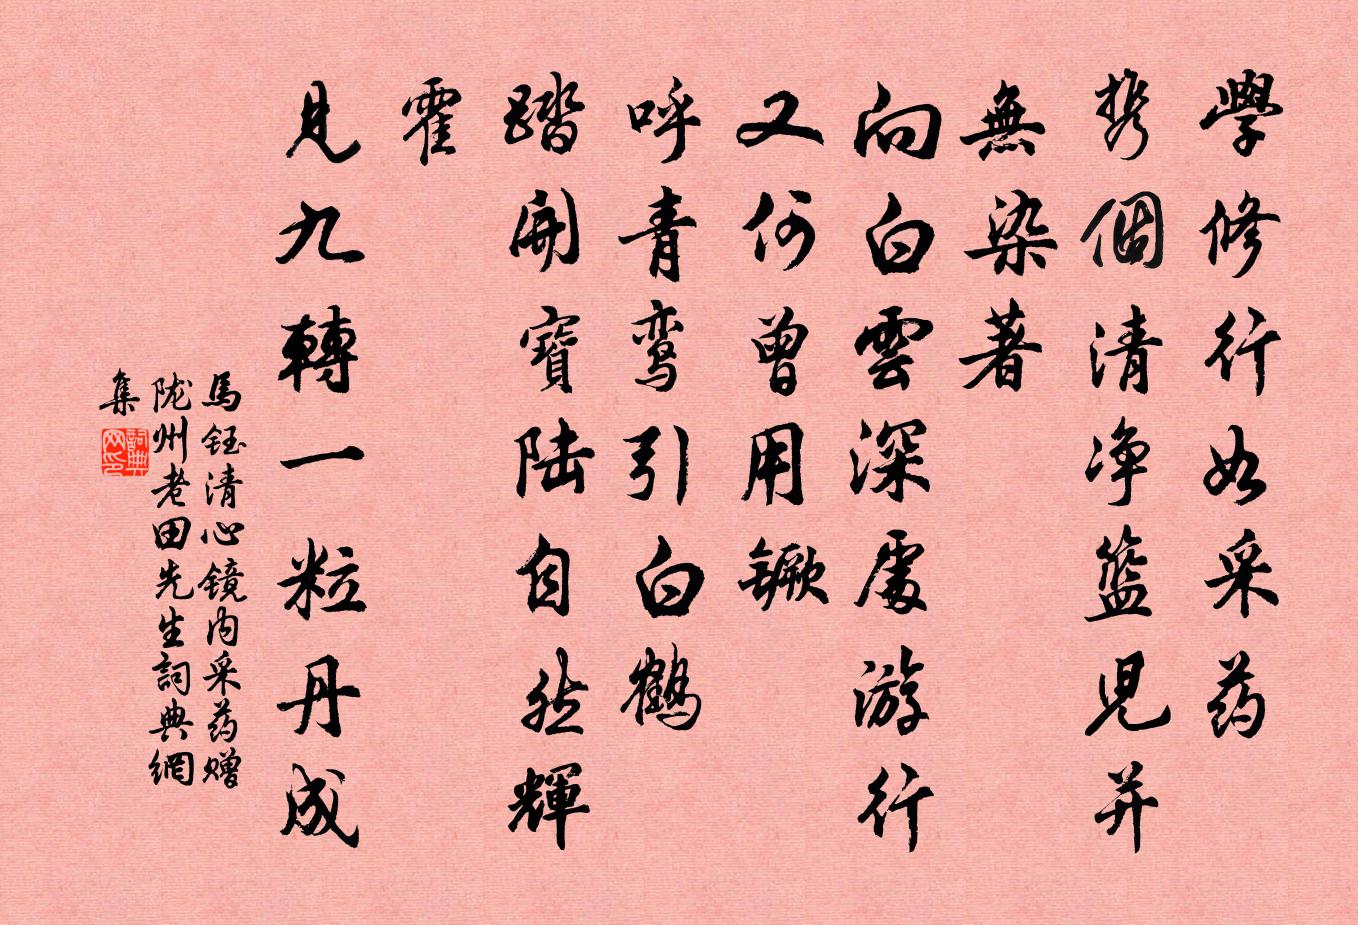 學修行如采药
携個清净篮児并
無染著
向白雲深處游行
又何曾用镢
呼青鸾引白鹤
踏開寶陆自然輝
霍
見九轉一粒丹成
馬鈺清心镜内采药赠
陇州老田先生詞典網
集
詞典网印